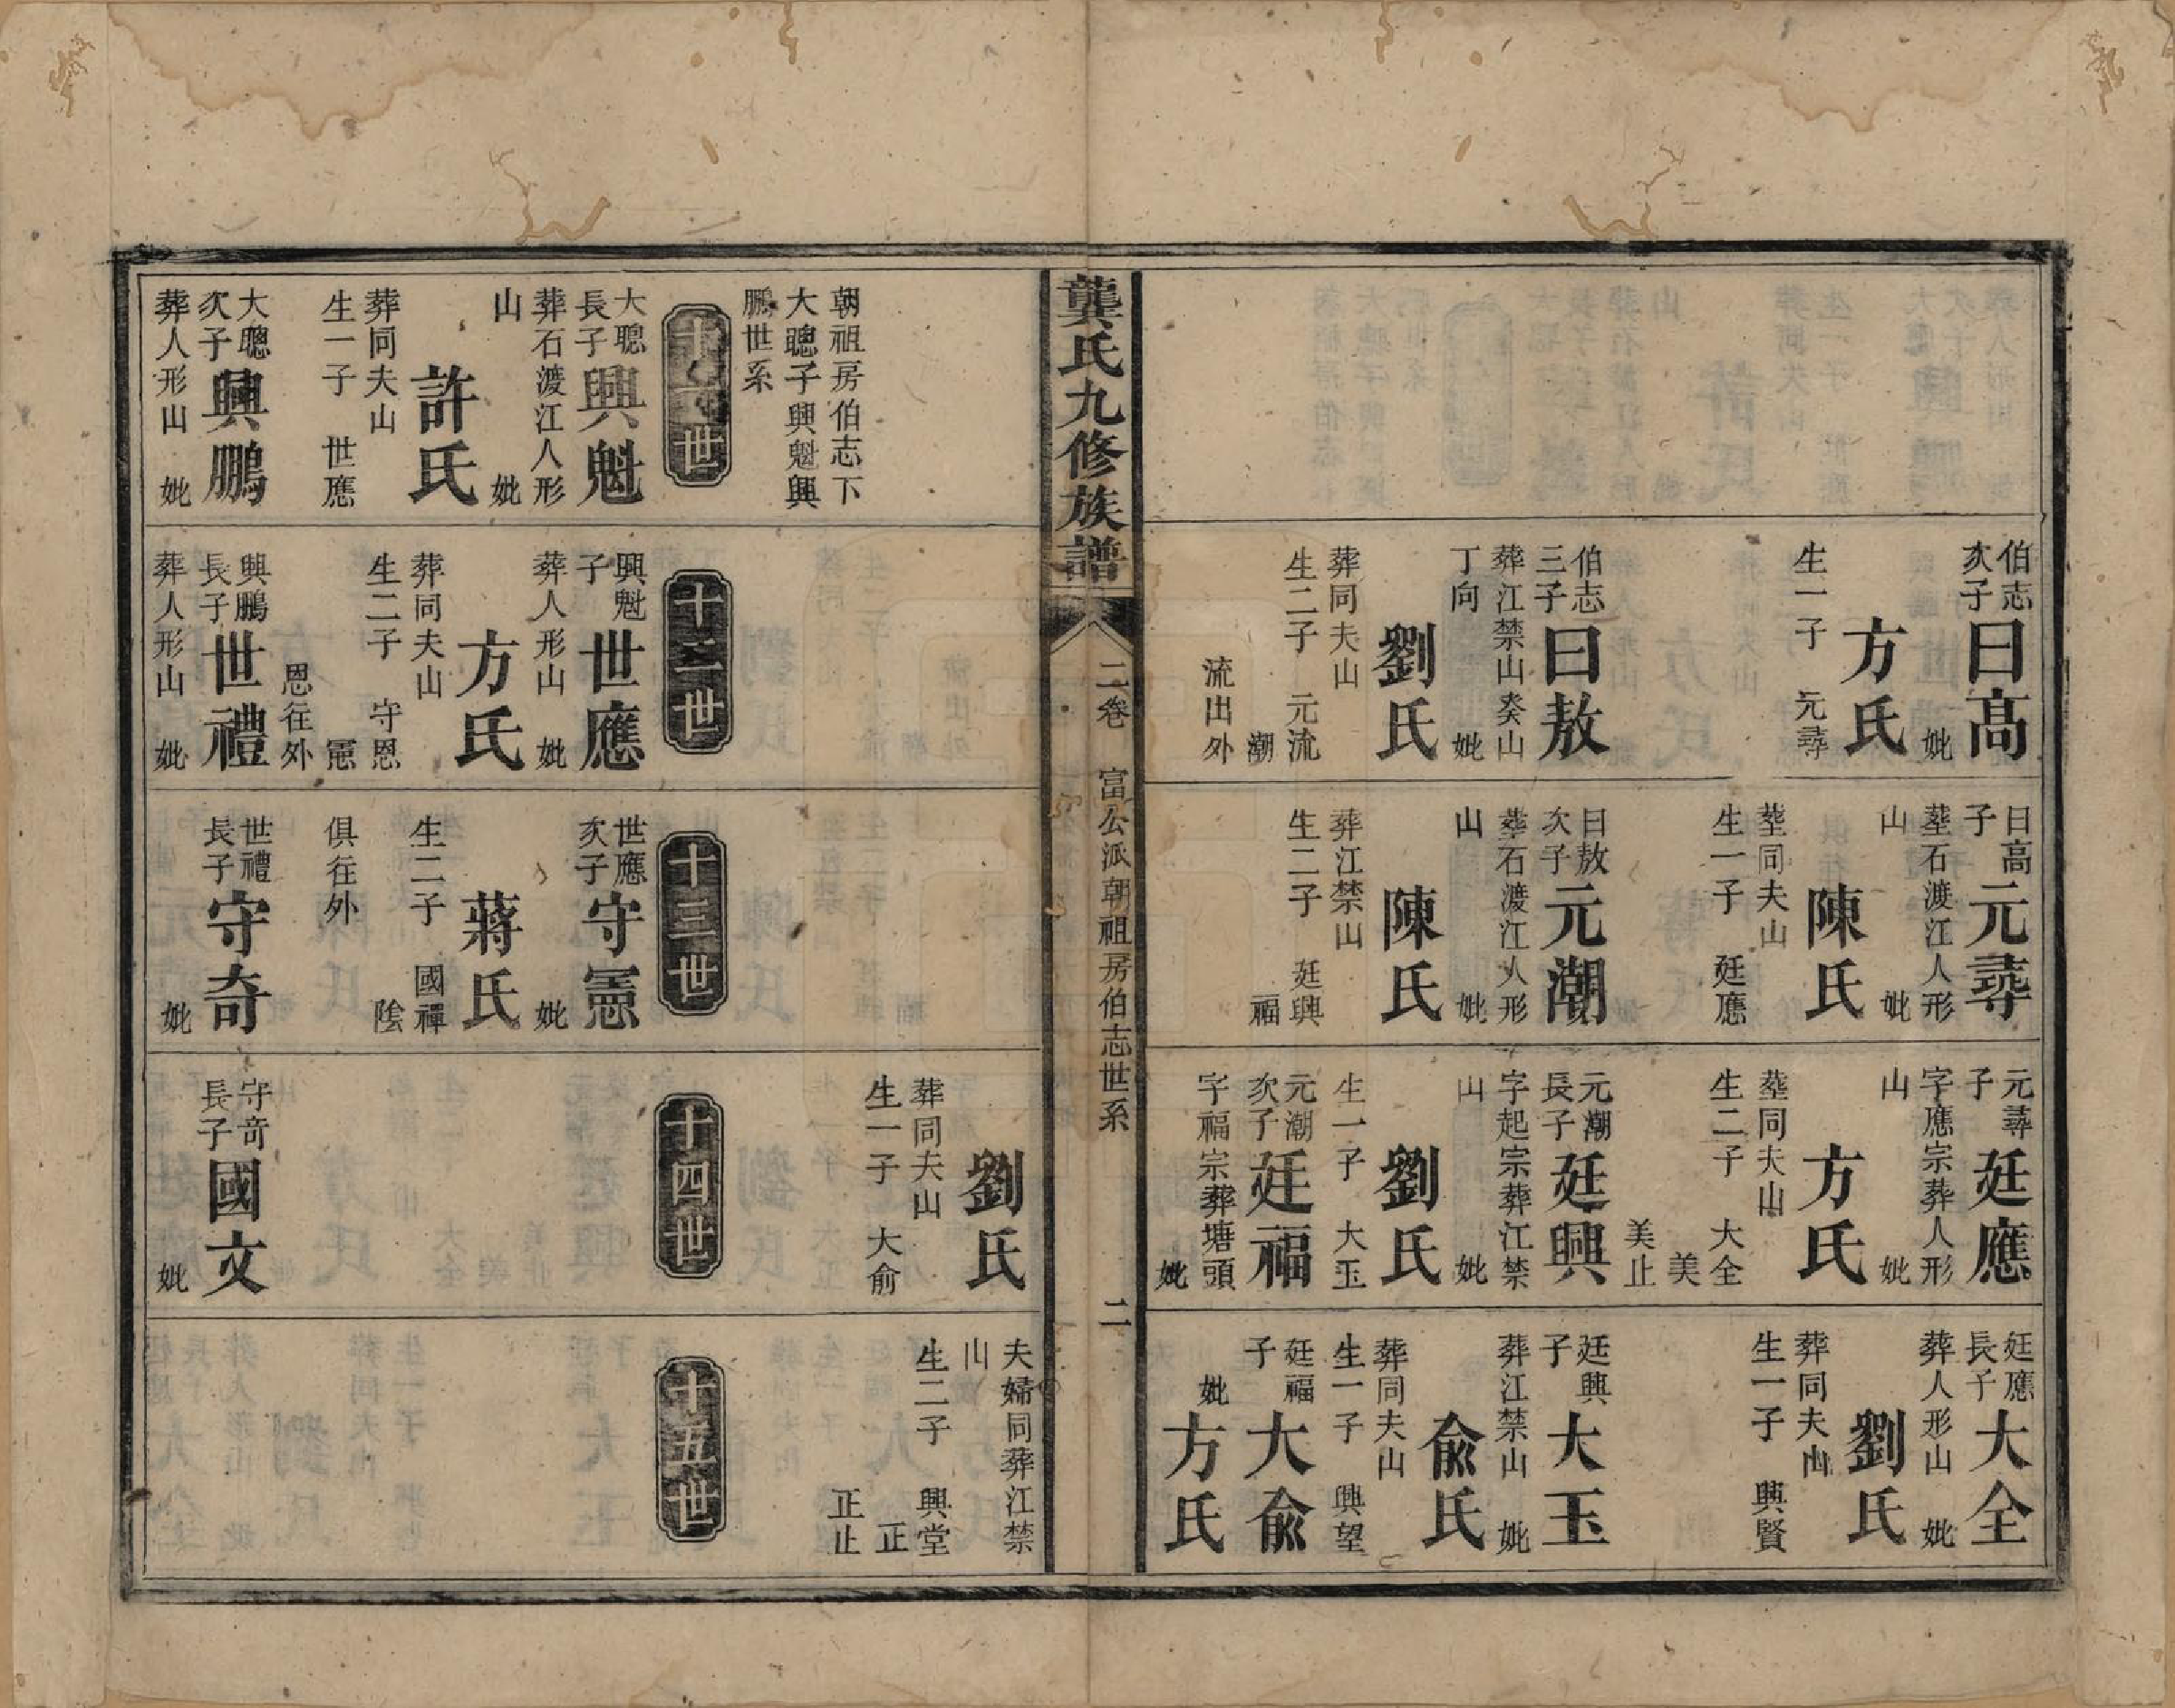 伯志
次子
曰高
妣
方氏
生一子 元尋
伯志
三子
曰敖
葬江禁山癸山
丁向 妣
劉氏
葬同夫山
生二子 元流
潮
流出外
曰高
子
元尋
葬石渡江人形
山 妣
陳氏
葬同夫山
生一子 廷應
曰敖
次子
元潮
葬石渡江人形
山 妣
陳氏
葬江禁山
生二子 廷興
福
元尋
子
廷應
字應宗葬人形
山 妣
方氏
葬同夫山
生二子 大全
美
美止
元潮
長子
廷興
字起宗葬江禁
山 妣
劉氏
生一子 大玉
元潮
次子
廷福
字福宗葬塘頭
妣
廷應
長子
大全
葬人形山 妣
劉氏
葬同夫山
生一子 興賢
廷興
子
大玉
葬江禁山 妣
俞氏
葬同夫山
生一子 興望
廷福
子
大俞
妣
方氏
龔氏九修族譜
二卷 富公派朝祖房伯志世系 二
朝祖房伯志下
大聰子興魁興
鵬世系
世
大聰
長子
興魁
葬石渡江人形
山 妣
許氏
葬同夫山
生一子 世應
大聰
次子
興鵬
葬人形山 妣
十二世
興魁
子
世應
葬人形山 妣
方氏
葬同夫山
生二子 守恩
憲
恩往外
興鵬
長子
世禮
葬人形山 妣
十三世
世應
次子
守憲
妣
蔣氏
生二子 國禪
陰
俱往外
世禮
長子
守奇
妣
劉氏
葬同夫山
生一子 大俞
十四世
守奇
長子
國文
妣
夫婦同葬江禁
山
生二子 興堂
正
正止
十五世